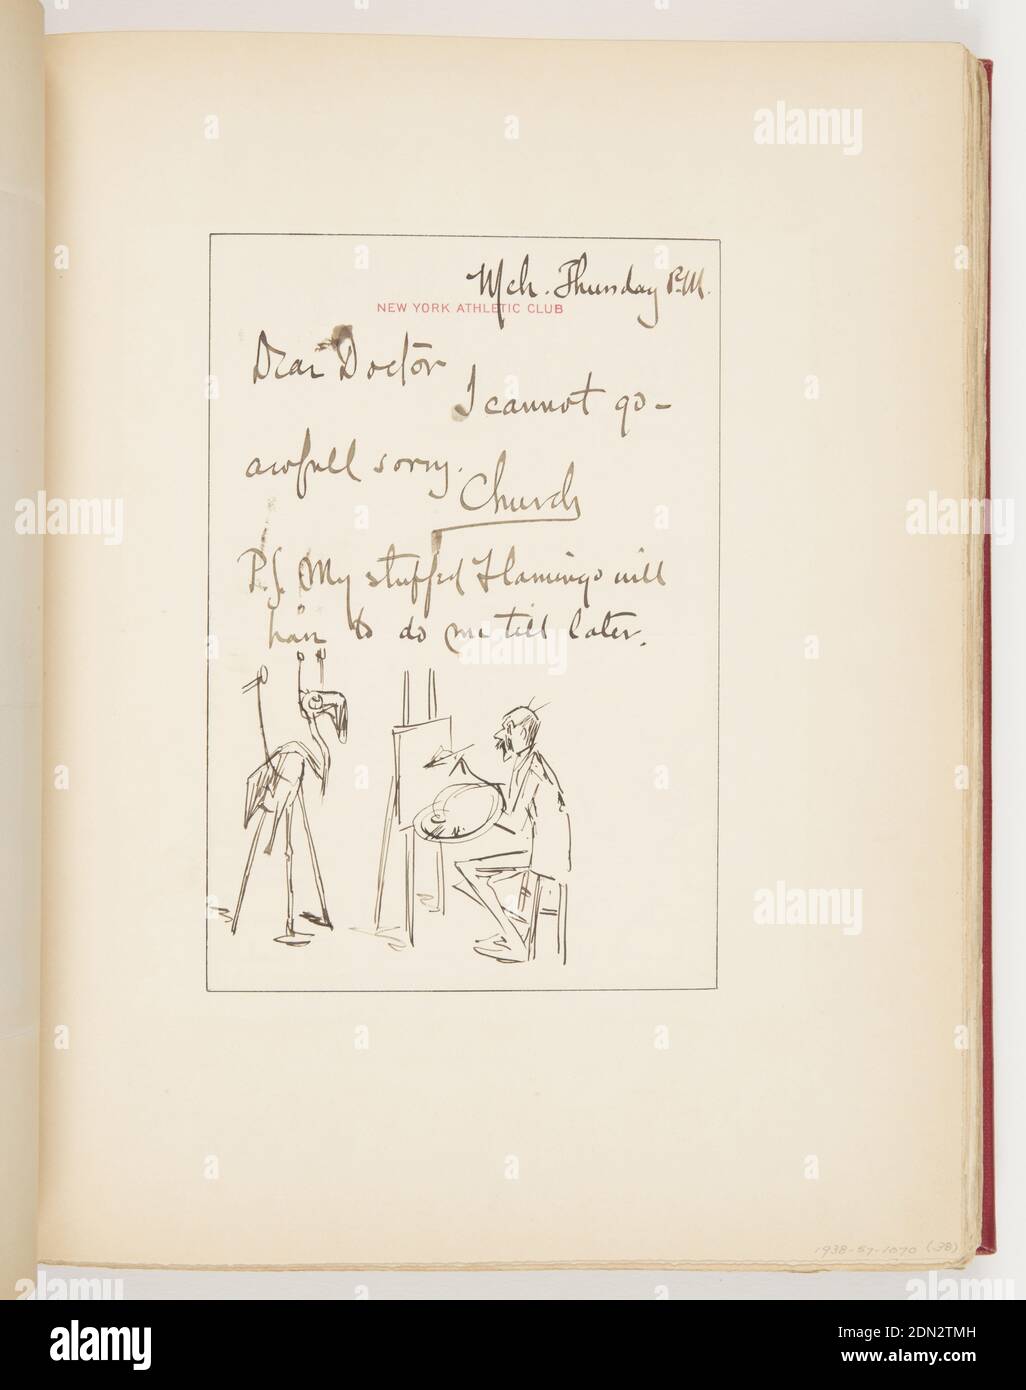 Mch. Thursday P.M.
NEW YORK ATHLETIC CLUB
Dear Doctor
I cannot go –
awfull sorry.
Church
P.S. My stuffed Flamingo will
have to do me till later.
1938-57-1070 (-38)
alamy
Image ID: 2DN2TMH
www.alamy.com